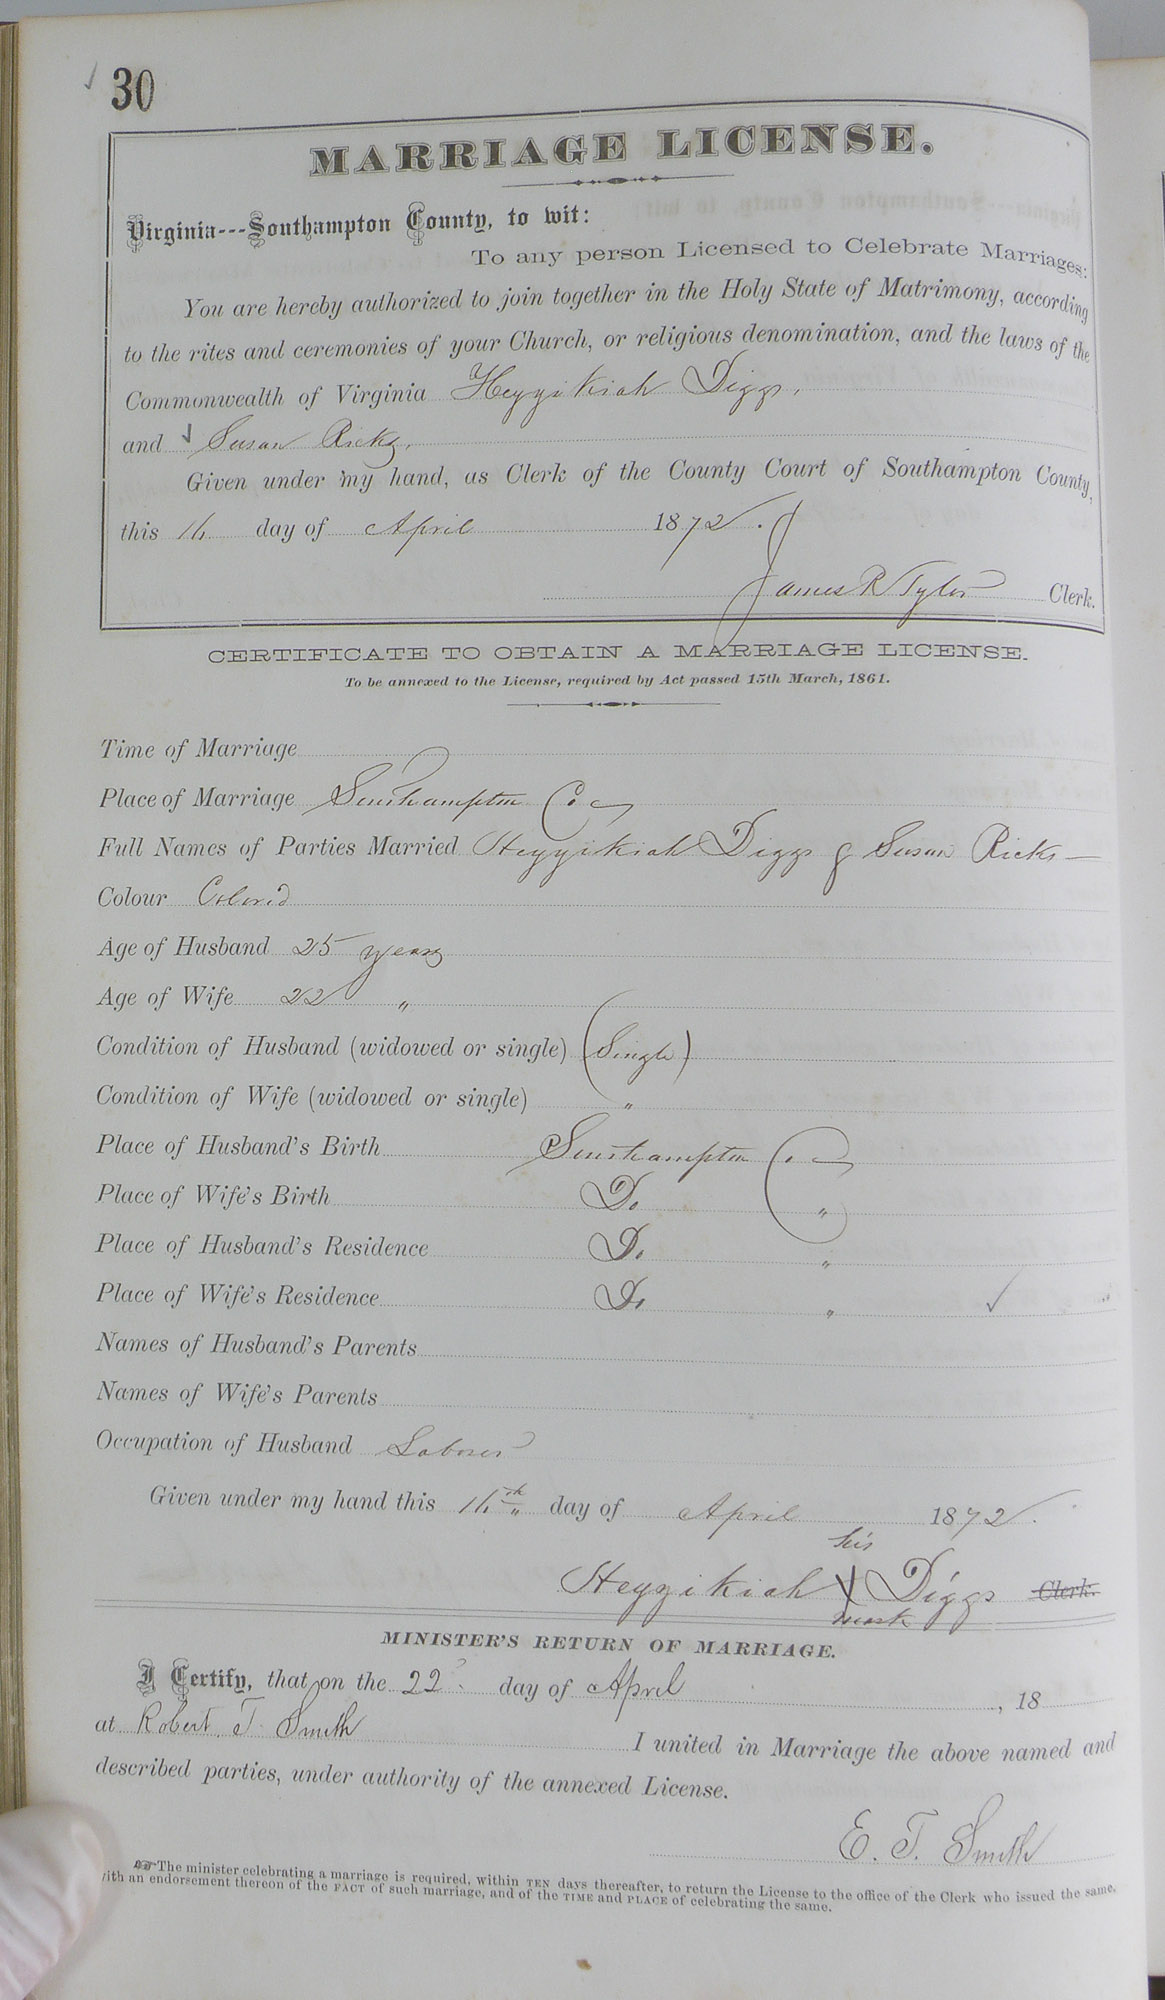 30
MARRIAGE LICENSE.
Virginia---Southampton County, to wit:
To any person Licensed to Celebrate Marriages:
You are hereby authorized to join together in the Holy State of Matrimony, according
to the rites and ceremonies of your Church, or religious denomination, and the laws of the
Commonwealth of Virginia Hezzikiah Diggs,
and Susan Ricks,
Given under my hand, as Clerk of the County Court of Southampton County,
this 16 day of April 1872.
James R Tyler Clerk.
CERTIFICATE TO OBTAIN A MARRIAGE LICENSE.
To be annexed to the License, required by Act passed 15th March, 1861.
Time of Marriage
Place of Marriage Southampton Co
Full Names of Parties Married Hezzikiah Diggs & Susan Ricks —
Colour Colored
Age of Husband 25 years
Age of Wife 22 "
Condition of Husband (widowed or single) (Single)
Condition of Wife (widowed or single) "
Place of Husband's Birth Southampton Co
Place of Wife's Birth Do "
Place of Husband's Residence Do "
Place of Wife's Residence Do "
Names of Husband's Parents
Names of Wife's Parents
Occupation of Husband Laborer
Given under my hand this 16th day of April 1872.
his
Hezzikiah X Diggs Clerk.
mark
MINISTER'S RETURN OF MARRIAGE.
I Certify, that on the 22 day of April, 18
at Robert T. Smith I united in Marriage the above named and
described parties, under authority of the annexed License.
E. T. Smith
☞The minister celebrating a marriage is required, within TEN days thereafter, to return the License to the office of the Clerk who issued the same,
with an endorsement thereon of the FACT of such marriage, and of the TIME and PLACE of celebrating the same.